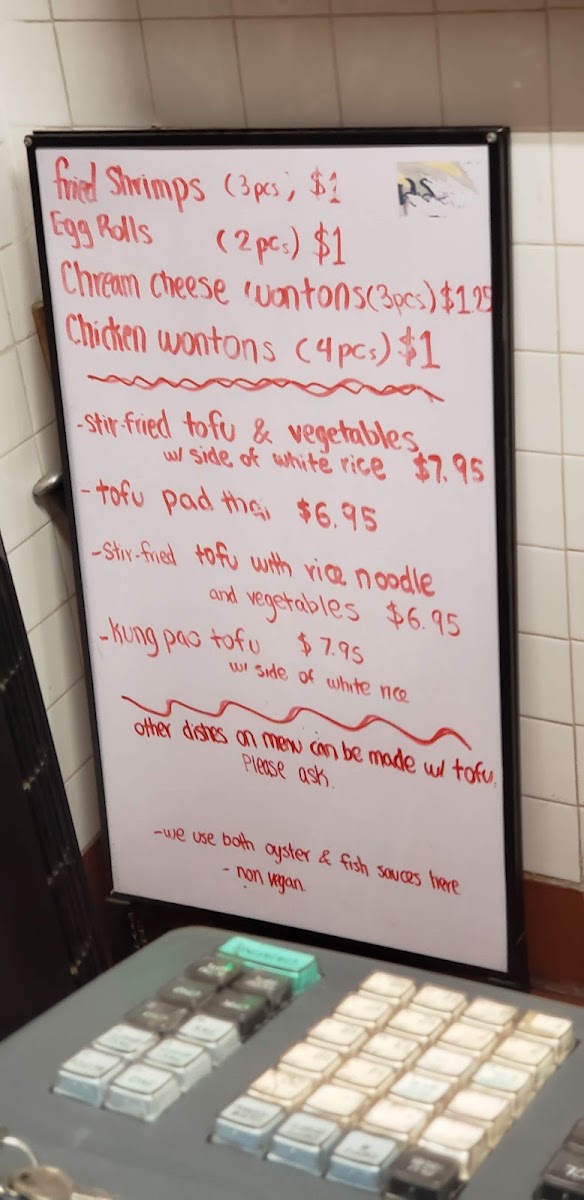 fried Shrimps (3pcs) $1
Egg Rolls (2pcs) $1
Chream cheese wontons (3pcs) $1.25
Chicken wontons (4pcs) $1
-stir-fried tofu & vegetables
w/ side of white rice $7.95
-tofu pad thai $6.95
-stir-fried tofu with rice noodle
and vegetables $6.95
-kung pao tofu $7.95
w/ side of white rice
other dishes on menu can be made w/ tofu.
Please ask.
-we use both oyster & fish sauces here
- non vegan